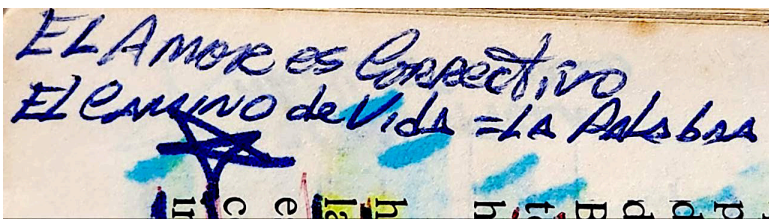 El Amor es Correctivo
El Camino de Vida = La Palabra